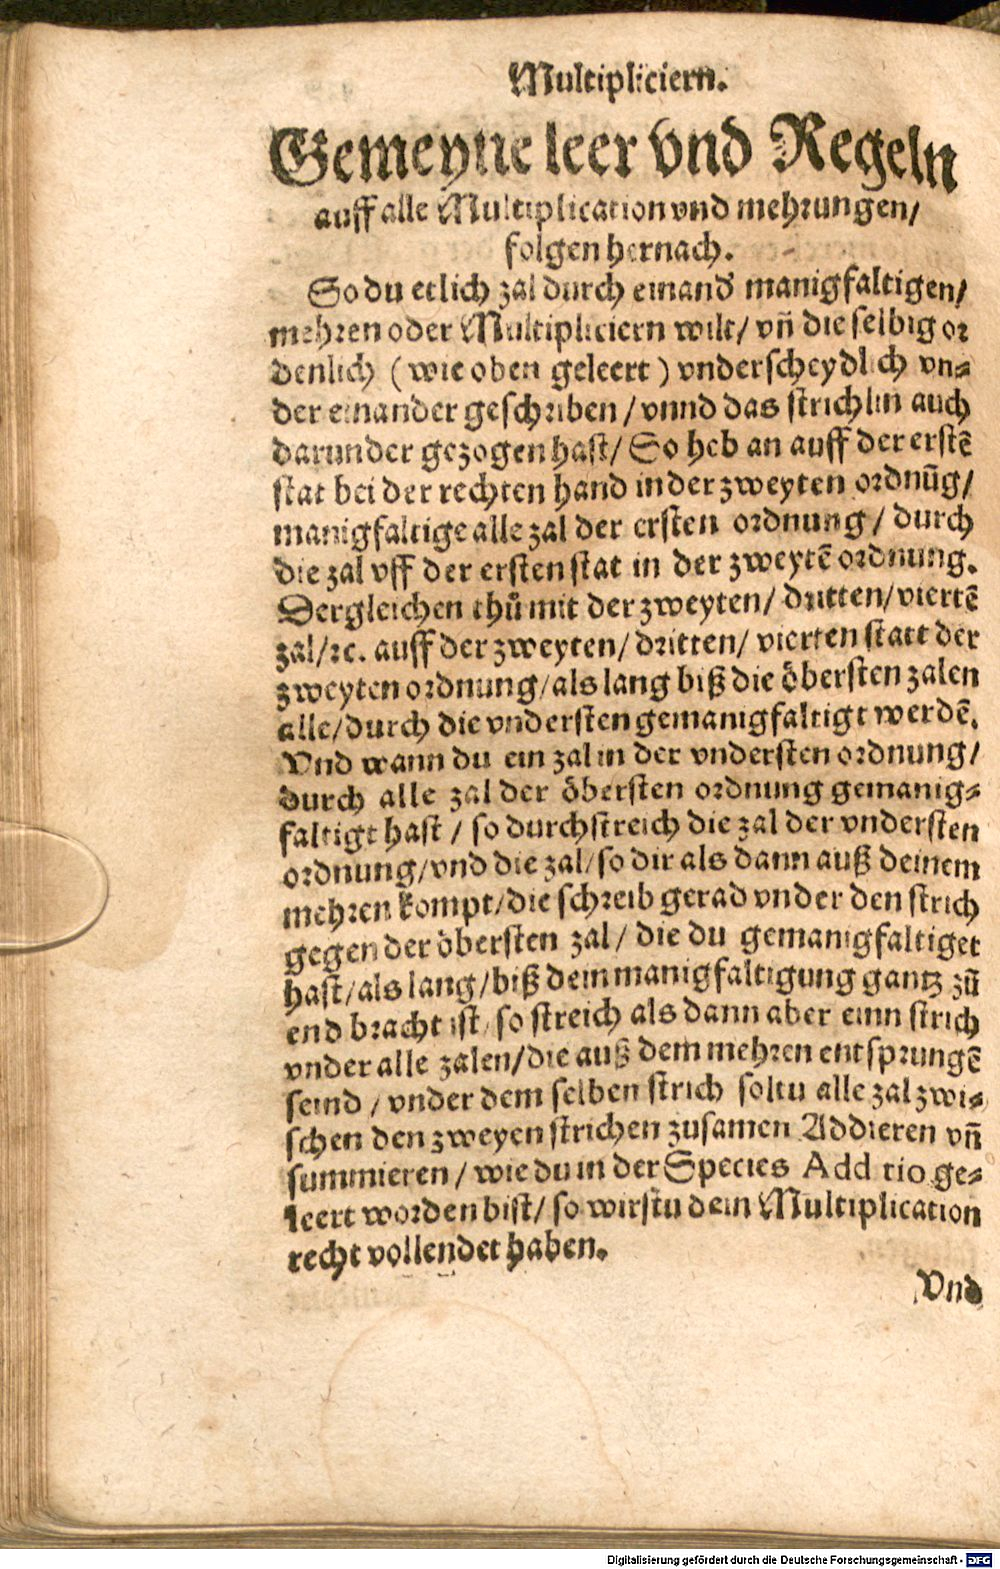 Multipliciern.
Gemeyne leer vnd Regeln
auff alle Multiplication vnd mehrungen/
folgen hernach.
So du etlich zal durch einand' manigfaltigen/
mehren oder Multipliciern wilt/ vñ die selbig or
denlich (wie oben geleert) vnderscheydlich vn⸗
der einander geschriben/ vnnd das strichlin auch
darunder gezogen hast/ So heb an auff der erstē
stat bei der rechten hand in der zweyten ordnūg/
manigfaltige alle zal der ersten ordnung/ durch
die zal vff der ersten stat in der zweytē ordnung.
Dergleichen thů mit der zweyten/ dritten/ viertē
zal/ ꝛc. auff der zweyten/ dritten/ vierten statt der
zweyten ordnung/ als lang biß die öbersten zalen
alle/ durch die vndersten gemanigfaltigt werdē.
Vnd wann du ein zal in der vndersten ordnung/
durch alle zal der öbersten ordnung gemanig⸗
faltigt hast/ so durchstreich die zal der vndersten
ordnung/ vnd die zal/ so dir als dann auß deinem
mehren kompt/ die schreib gerad vnder den strich
gegen der öbersten zal/ die du gemanigfaltiget
hast/ als lang/ biß dein manigfaltigung gantz zů
end bracht ist/ so streich als dann aber einn strich
vnder alle zalen/ die auß dem mehren entsprungē
seind/ vnder dem selben strich soltu alle zal zwi⸗
schen den zweyen strichen zusamen Addieren vñ
summieren/ wie du in der Species Add tio ge⸗
leert worden bist/ so wirstu dein Multiplication
recht vollendet haben.
Vnd
Digitalisierung gefördert durch die Deutsche Forschungsgemeinschaft - DFG